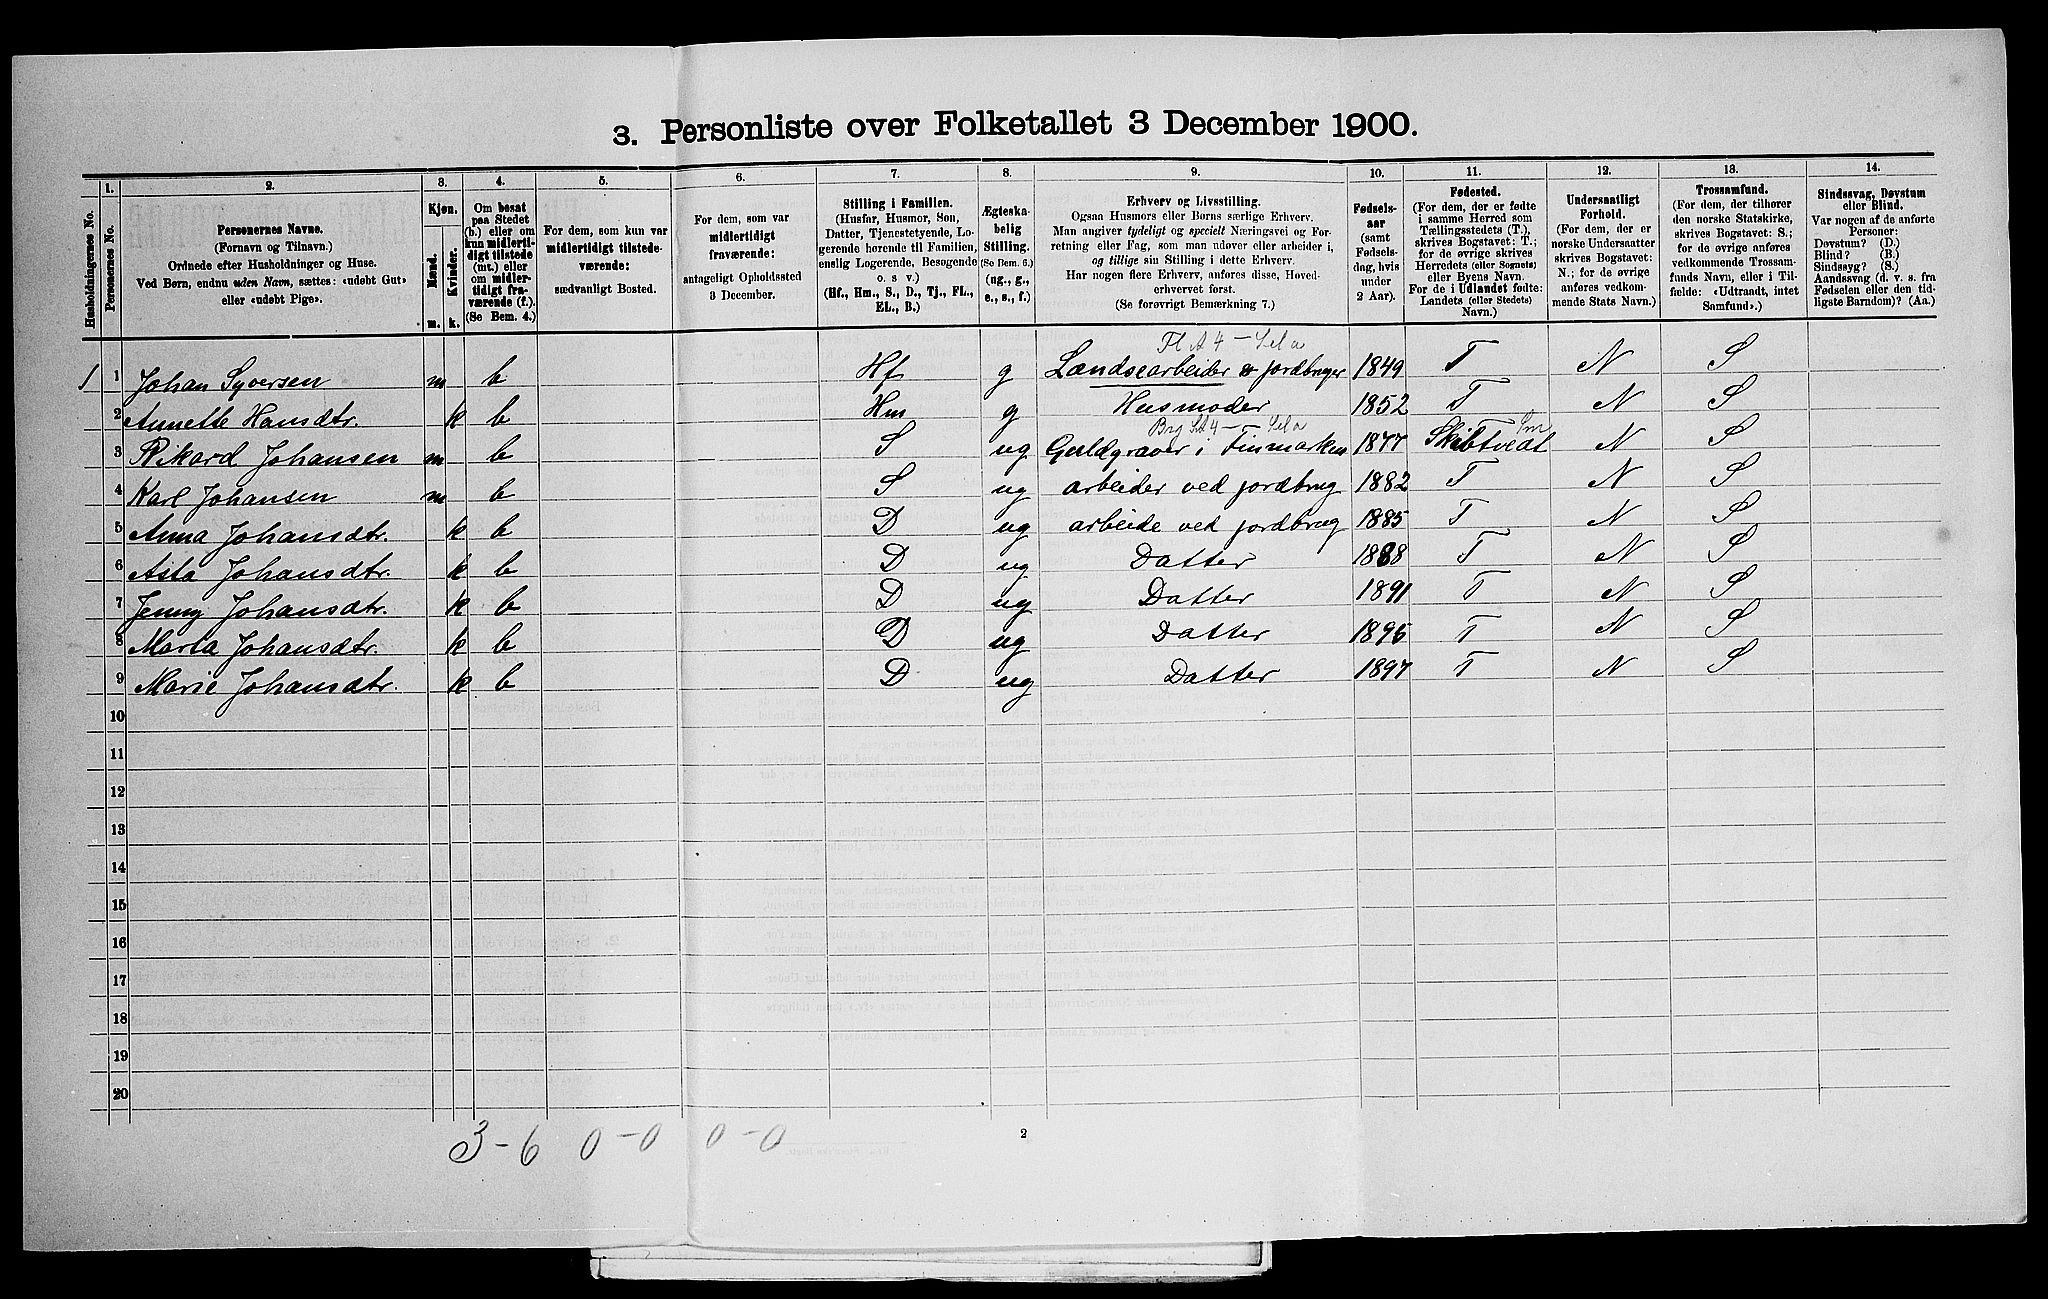 3. Personliste over Folketallet 3 December 1900.
Husholdningernes No.
1.
Personernes No.
2.
Personernes Navne.
(Fornavn og Tilnavn.)
Ordnede efter Husholdninger og Huse.
Ved Børn, endnu uden Navn, sættes: «udøbt Gut»
eller «udøbt Pige».
3.
Kjøn.
Mænd.
Kvinder.
m. k.
4.
Om bosat
paa Stedet
(b.) eller om
kun midlerti-
digt tilstede
(mt.) eller
om midler-
tidigt fra-
værende (f.).
(Se Bem. 4.)
5.
For dem, som kun var
midlertidigt tilstede-
værende:
sædvanligt Bosted.
6.
For dem, som var
midlertidigt
fraværende:
antageligt Opholdssted
3 December.
7.
Stilling i Familien.
(Husfar, Husmor, Søn,
Datter, Tjenestetyende, Lo-
gerende hørende til Familien,
enslig Logerende, Besøgende
o. s. v.)
(Hf., Hm., S., D., Tj., FL.,
EL., B.)
8.
Ægteska-
belig
Stilling.
(Se Bem. 6.)
(ug., g.,
e., s., f.)
9.
Erhverv og Livsstilling.
Ogsaa Husmors eller Børns særlige Erhverv.
Man angiver tydeligt og specielt Næringsvei og For-
retning eller Fag, som man udøver eller arbeider i,
og tillige sin Stilling i dette Erhverv.
Har nogen flere Erhverv, anføres disse, Hoved-
erhvervet først.
(Se forøvrigt Bemærkning 7.)
10.
Fødsels-
aar
(samt
Fødsels-
dag, hvis
under
2 Aar).
11.
Fødested.
(For dem, der er fødte
i samme Herred som
Tællingsstedets (T.),
skrives Bogstavet: T.;
for de øvrige skrives
Herredets (eller Sognets)
eller Byens Navn.
For de i Udlandet fødte:
Landets (eller Stedets)
Navn.)
12.
Undersaatligt
Forhold.
(For dem, der er
norske Undersaatter
skrives Bogstavet:
N.; for de øvrige
anføres vedkom-
mende Stats Navn.)
13.
Trossamfund.
(For dem, der tilhører
den norske Statskirke,
skrives Bogstavet: S.;
for de øvrige anføres
vedkommende Trossam-
funds Navn, eller i Til-
fælde: «Udtraadt, intet
Samfund».)
14.
Sindssvag, Døvstum
eller Blind.
Var nogen af de anførte
Personer:
Døvstum? (D.)
Blind? (B.)
Sindssyg? (S.)
Aandssvag (d. v. s. fra
Fødselen eller den tid-
ligste Barndom)? (Aa.)
Fl A 4 — Sela
1 1 Johan Syversen m b Hf g Landsearbeider & jordbruger 1849 T N S
2 Annette Hansdtr. k b Hm g Husmoder 1852 T N S
Brg S A 4 — Sela Sm
3 Rikard Johansen m b S ug Guldgraver i Finmarken 1877 Skibtvedt N S
4 Karl Johansen m b S ug arbeider ved jordbrug 1882 T N S
5 Anna Johansdtr. k b D ug arbeide ved jordbrug 1885 T N S
6 Asta Johansdtr. k b D ug Datter 1888 T N S
7 Jenny Johansdtr. k b D ug Datter 1891 T N S
8 Marta Johansdtr. k b D ug Datter 1895 T N S
9 Marie Johansdtr. k b D ug Datter 1897 T N S
10
11
12
13
14
15
16
17
18
19
20
3-6 0-0 0-0
2